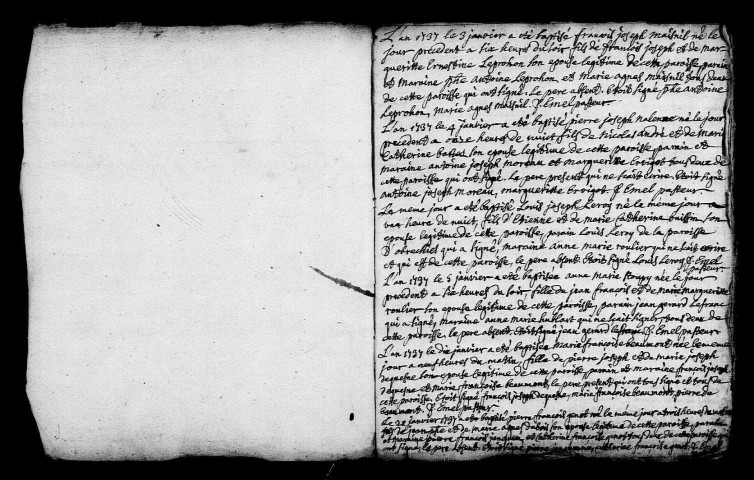 L'an 1737 le 3 janvier a eté baptisé françois joseph maisnil né le
jour precedent a six heures du soir fils de françois joseph et de mar-
gueritte Ernestine Leprohon son epouse legitime de cette paroisse parain
et maraine phe Antoine Leprohon et Marie agnes maisnil tous deux
de cette paroisse qui ont signé. Le pere absent. etoit signé phe Antoine
Leprohon, Marie agnes maisnil. J. Emel pasteur.
L'an 1737 le 4 janvier a eté baptisé pierre joseph né le jour
precedent a onze heures de nuict fils de Nicolas André et de Marie
Catherine son epouse legitime de cette paroisse parain et
maraine antoine joseph moreau et margueritte Broigot tous deux de
cette paroisse qui ont signé. Le pere present qui ne scait ecrire. Etoit signé
antoine joseph Moreau, margueritte Broigot J. Emel pasteur
La meme jour a eté baptisé Louis joseph Leroy né le meme jour a
une heure de nuict, fils d'Etienne et de marie Catherine buissin son
epouse legitime de cette paroisse, parain Louis Leroy de la paroisse
D'obrechies qui a signé, maraine anne marie roulier qui ne scait ecrire
et qui est de cette paroisse, le pere absent. Etoit signé Louis Leroy J. Emel
pasteur.
L'an 1737 le 5 janvier a eté baptisée anne marie fleury née le jour
precedent a six heures du soir fille de jean françois et de marie margueritte
roulier son epouse legitime de cette paroisse, parain jean gerard Lefranc
qui a signé, maraine anne marie hublart qui ne scait signer tous deux de
cette paroisse. le pere absent. etoit signé jean gerard lefranc J. Emel pasteur
L'an 1737 le janvier a eté baptisée marie françoise beaumont née le meme
jour a neuf heures du matin, fille de pierre joseph et de marie joseph
dequesne son epouse legitime de cette paroisse, parain et maraine françois joseph
dequesne et marie françoise beaumont, le pere present qui ont tous signé et tous de
cette paroisse. Etoit signé françois joseph dequesne, marie françoise beaumont, pierre
beaumont. J. Emel pasteur
Le 20 janvier 1737 a eté baptisé pierre françois né le meme jour a trois heures du matin
fils de jean phe et de marie agnes dubois son epouse legitime de cette paroisse, parain
et maraine pierre françois et Catherine françoise tous deux de cette paroisse qui
ont signé, le pere absent. Etoit signé pierre Catherine françoise J. Emel